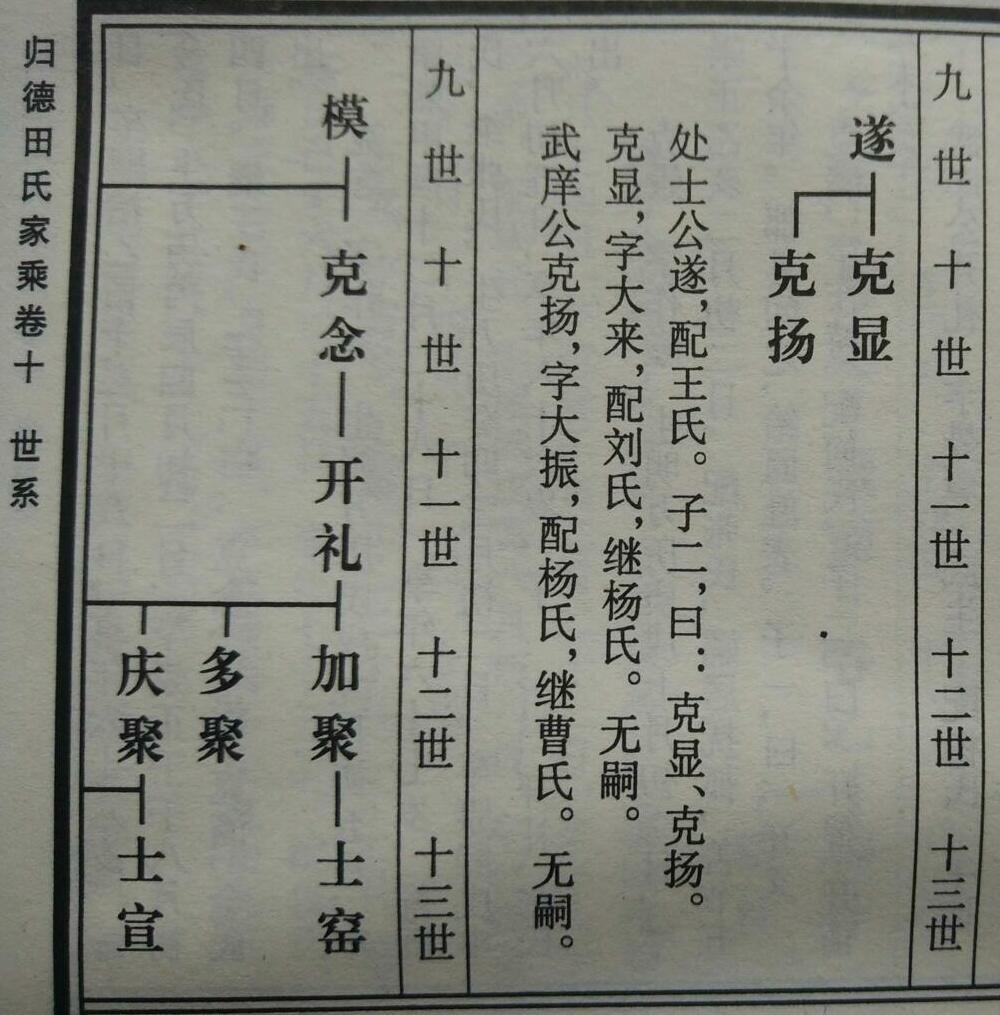 九世 十世 十一世 十二世 十三世
遂 克显
克扬
处士公遂，配王氏。子二，曰：克显、克扬。
克显，字大来，配刘氏，继杨氏。无嗣。
武庠公克扬，字大振，配杨氏，继曹氏。无嗣。
九世 十世 十一世 十二世 十三世
模 克念 开礼 加聚 士窑
多聚
庆聚 士宣
归德田氏家乘卷十 世系